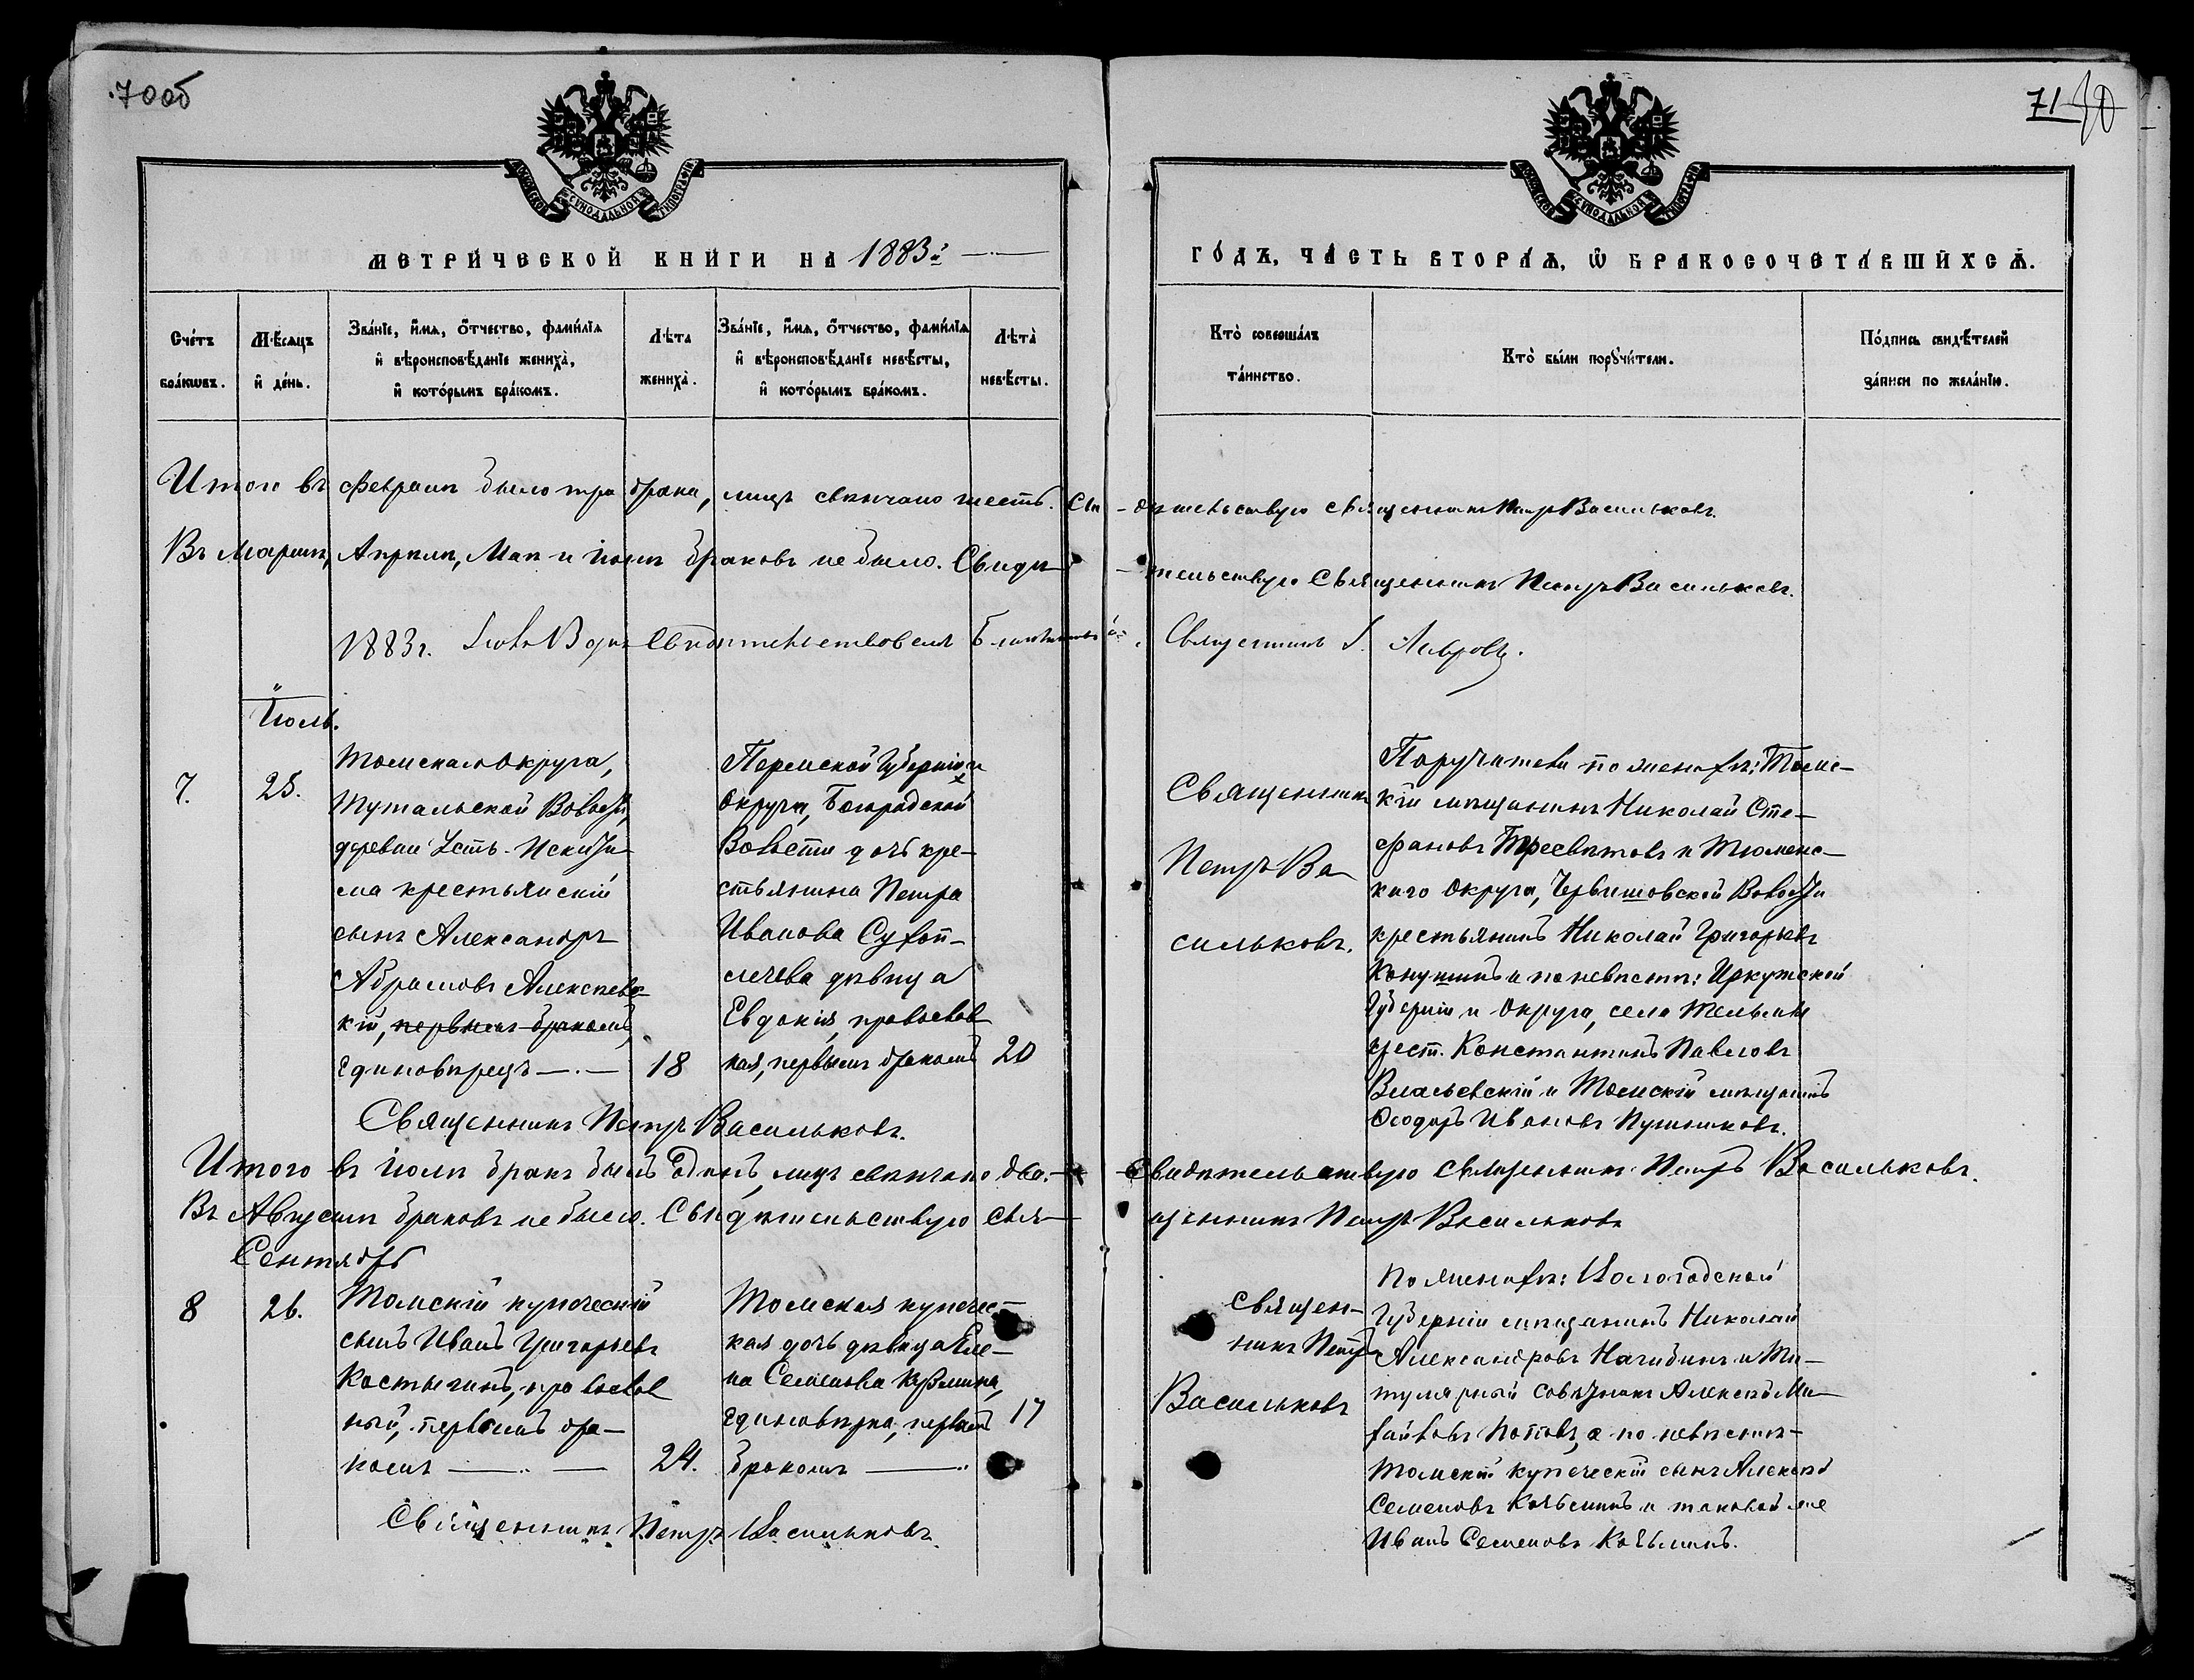 70об
71
МЕТРИЧЕСКОЙ КНИГИ НА 1883й
ГОДЪ, ЧАСТЬ ВТОРАЯ, Ѡ БРАКОСОЧЕТАВШИХСЯ.
Счетъ браковъ.
Мѣсяцъ и день.
Званіе, имя, отчество, фамилія
и вѣроисповѣданіе жениха,
и которымъ бракомъ.
Лѣта
жениха.
Званіе, имя, отчество, фамилія
и вѣроисповѣданіе невѣсты,
и которымъ бракомъ.
Лѣта
невѣсты.
Кто совершалъ
таинство.
Кто были поручители.
Подпись свидѣтелей
записи по желанію.
Итого въ Февралѣ было три брака, лицъ свѣнчано шесть. Сви-дѣтельствую священникъ Петръ Васильковъ.
Въ Мартѣ, Апрѣлѣ, Маѣ и Іюнѣ браковъ не было. Свидѣ-тельствую Священникъ Петръ Васильковъ.
1883г. свидѣтельствовалъ Священникъ Лавровъ.
Іюль.
7.
25.
Томскаго Округа,
Тутальской Волости,
деревни Усть-Искити-
ма крестьянскій
сынъ Александръ
Абрамовъ Алексѣевс-
кій, первымъ бракомъ,
единовѣрецъ
18
Пермской Губерніи и
Округа,
Волости дочь кре-
стьянина Петра
Иванова
дѣвица
Евдокія, православ
ная, первымъ бракомъ
20
Священникъ
Петръ Ва
сильковъ.
Поручители по женихѣ: Томс-
кій мѣщанинъ Николай Сте-
фановъ Тресвятовъ и Тюменс-
каго Округа, Червишовской Волости
крестьянинъ Николай Григорьевъ
и по невѣстѣ: Иркутской
Губерніи и Округа, села
крест. Константинъ Павловъ
и Томскій мѣщанинъ
Ѳеодоръ Ивановъ Пушниковъ.
Священникъ Петръ Васильковъ.
Итого въ Іюлѣ бракъ былъ одинъ, лицъ свѣнчано два. Свидѣтельствую священникъ Петръ Васильковъ.
Въ Августѣ браковъ не было. Свидѣтельствую свя-щенникъ Петръ Васильковъ
Сентябрь
8
26.
Томскій купеческій
сынъ Иванъ Григорьевъ
Костыгинъ, православ
ный, первымъ бра-
комъ
24.
Томская купечес-
кая дочь дѣвица Еле-
на Семенова
единовѣрка, первымъ
бракомъ
17
Священ-
никъ Петръ
Васильковъ
По женихѣ: Вологодской
Губерніи мѣщанинъ Николай
Александровъ Нагибинъ и Ти-
тулярный совѣтникъ Алексѣй Ми-
хайловъ Поповъ, а по невѣстѣ-
Томскій купеческій сынъ Алексѣй
Семеновъ и таковой же
Иванъ Семеновъ
Священникъ Петръ Васильковъ.